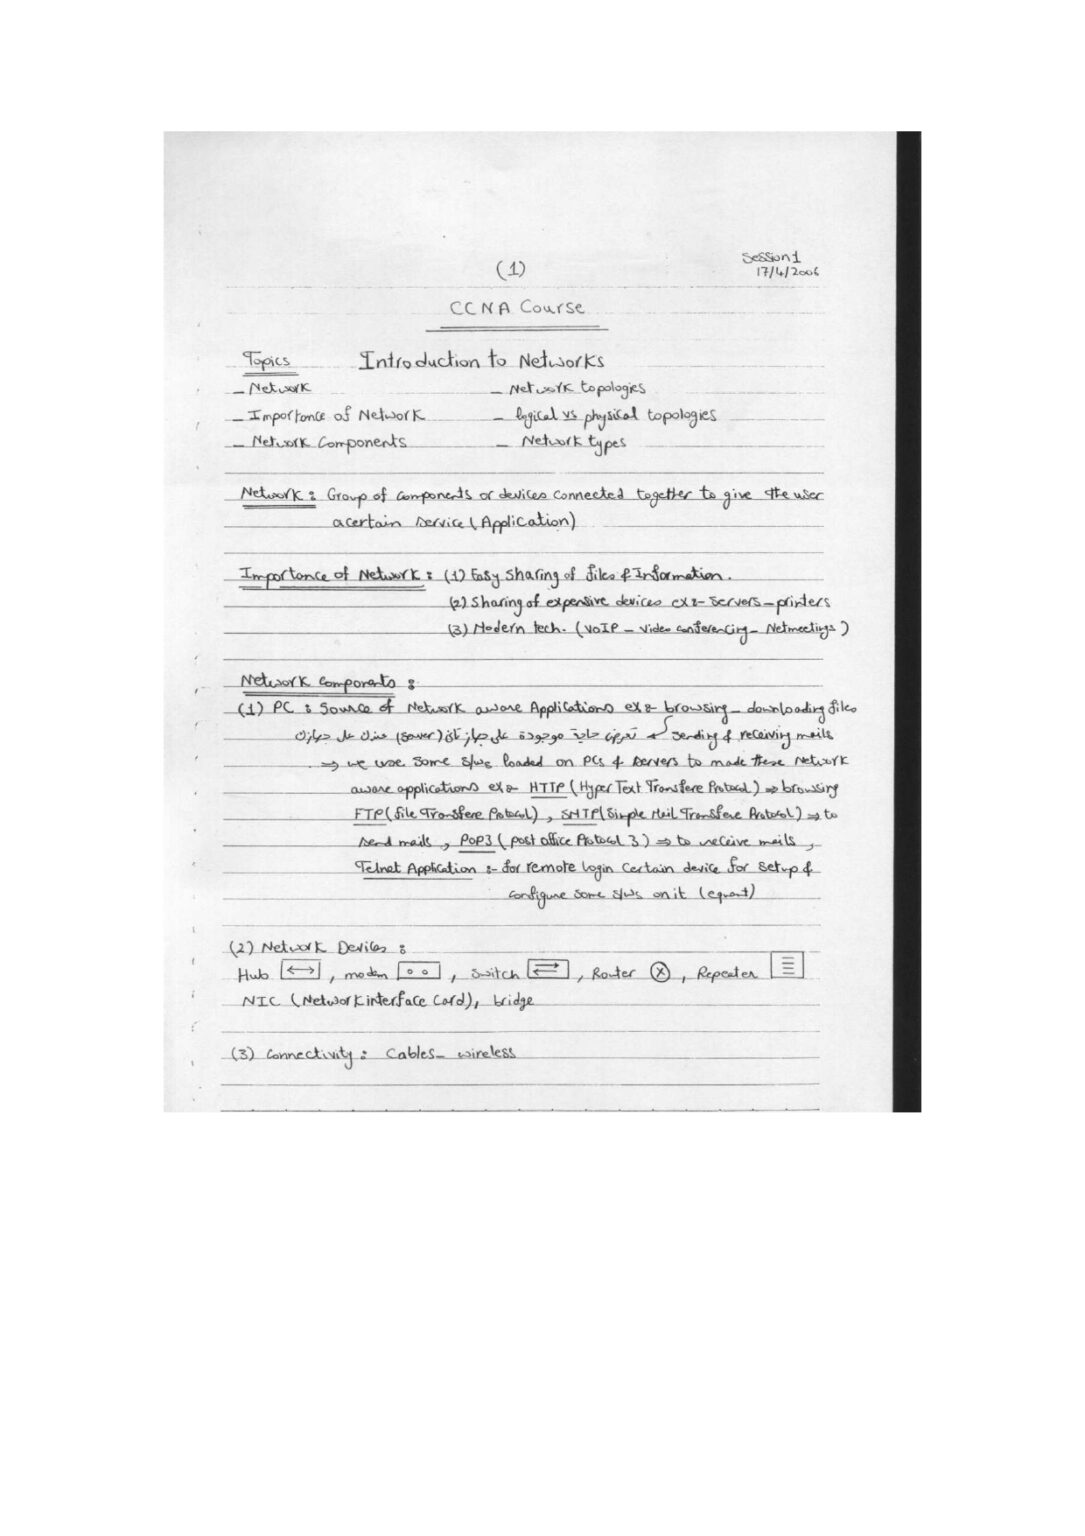 Session 1
(1)
17/4/2006
CCNA Course
Topics Introduction to Networks
- Network - Network topologies
- Importance of Network - logical vs physical topologies
- Network Components - Network types
Network: Group of components or devices connected together to give the user
a certain service (Application)
Importance of Network: (1) Easy Sharing of files & Information.
(2) Sharing of expensive devices ex:- servers - printers
(3) Modern tech. (VoIP - Video conferencing - Netmeetings)
Network Components:
(1) PC: Source of Network aware Applications ex:- browsing - downloading files
sending & receiving mails ← موجودة على جهاز تاني (server) عندك على جهازك
⇒ we use some s/ws loaded on PCs & servers to made these Network
aware applications ex:- HTTP (Hyper Text Transfere Protocol) ⇒ browsing
FTP (file Transfere Protocol), SMTP (Simple Mail Transfere Protocol) ⇒ to
send mails, POP3 (post office Protocol 3) ⇒ to receive mails,
Telnet Application :- for remote login certain device for setup &
configure some s/ws on it (equant)
(2) Network Devices:
Hub, modem, Switch, Router, Repeater
NIC (Network interface Card), bridge
(3) Connectivity: Cables - wireless